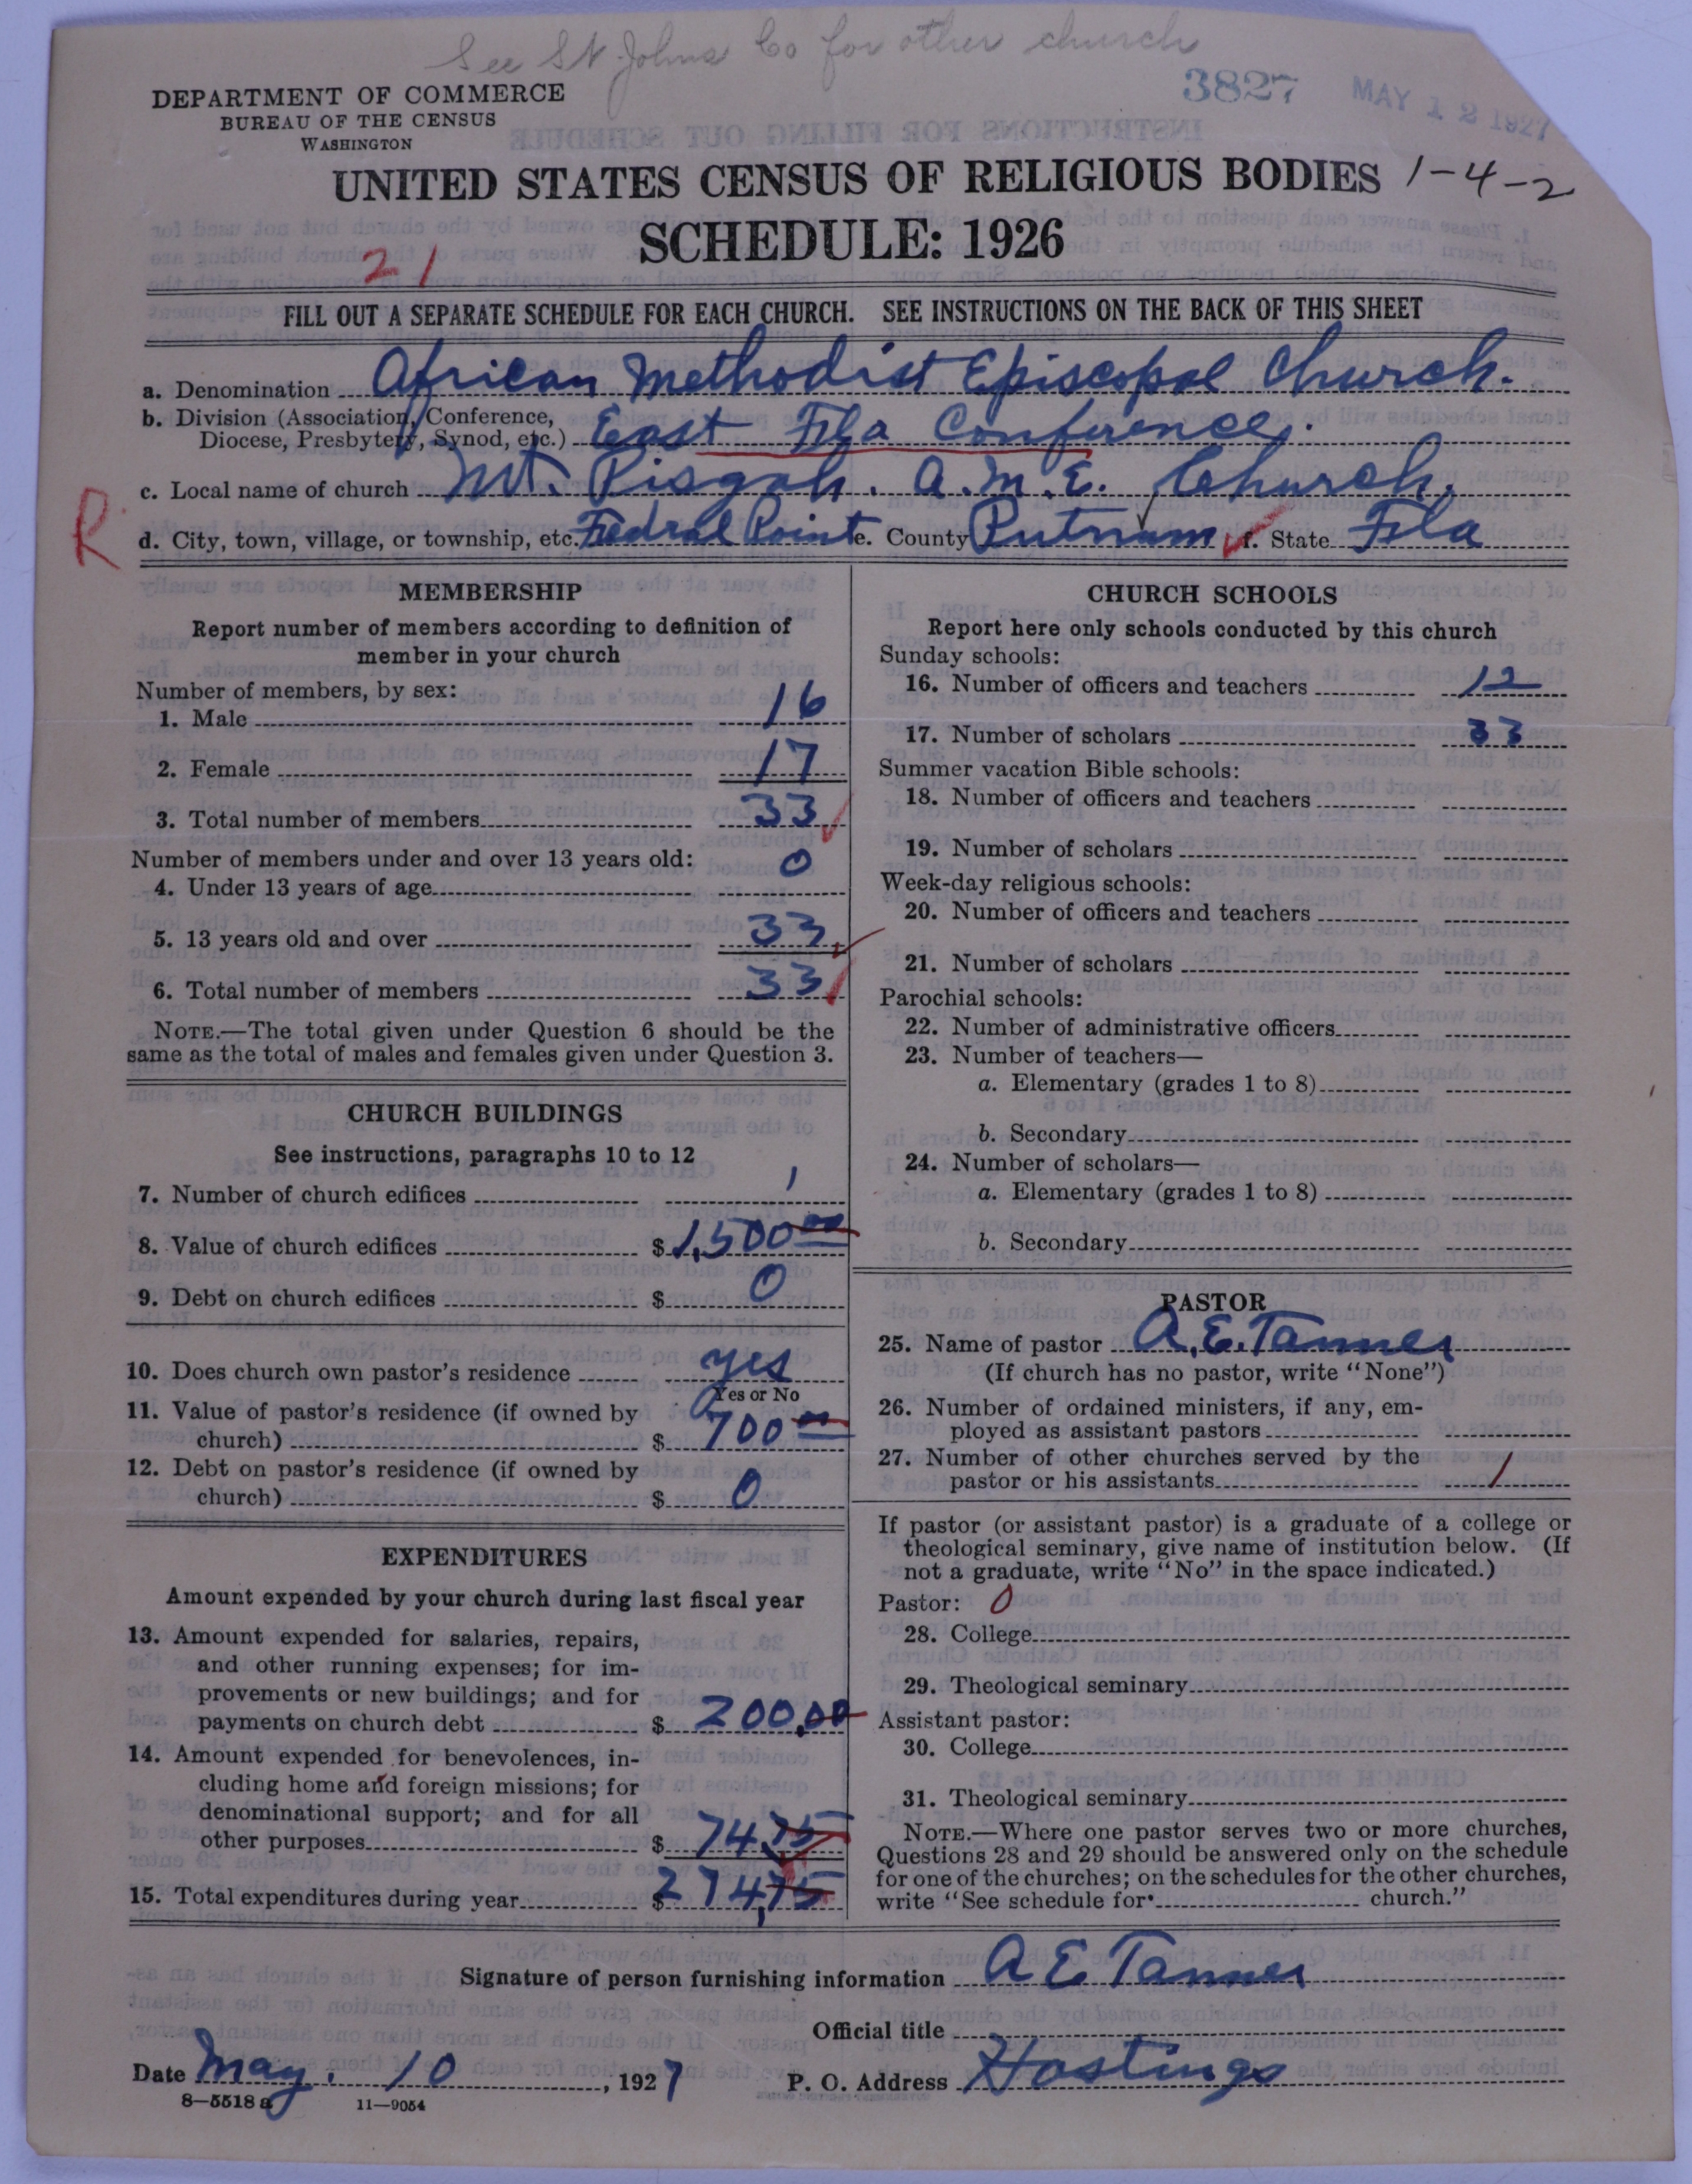 See St Johns Co for other church
3827 MAY 12 1927
DEPARTMENT OF COMMERCE
BUREAU OF THE CENSUS
WASHINGTON
UNITED STATES CENSUS OF RELIGIOUS BODIES 1-4-2
SCHEDULE: 1926
21
FILL OUT A SEPARATE SCHEDULE FOR EACH CHURCH. SEE INSTRUCTIONS ON THE BACK OF THIS SHEET
a. Denomination African Methodist Episcopal Church.
b. Division (Association, Conference,
Diocese, Presbytery, Synod, etc.) East Fla Conference.
c. Local name of church Mt. Pisgah. A.M.E. Church.
R
d. City, town, village, or township, etc. Fedral Point e. County Putnam f. State Fla
MEMBERSHIP
Report number of members according to definition of
member in your church
Number of members, by sex:
1. Male 16
2. Female 17
3. Total number of members 33
Number of members under and over 13 years old:
4. Under 13 years of age 0
5. 13 years old and over 33
6. Total number of members 33
NOTE.—The total given under Question 6 should be the
same as the total of males and females given under Question 3.
CHURCH BUILDINGS
See instructions, paragraphs 10 to 12
7. Number of church edifices 1
8. Value of church edifices $1,500 00
9. Debt on church edifices $ 0
10. Does church own pastor's residence yes
Yes or No
11. Value of pastor's residence (if owned by
church) $ 700 00
12. Debt on pastor's residence (if owned by
church) $ 0
EXPENDITURES
Amount expended by your church during last fiscal year
13. Amount expended for salaries, repairs,
and other running expenses; for im-
provements or new buildings; and for
payments on church debt $ 200,00
14. Amount expended for benevolences, in-
cluding home and foreign missions; for
denominational support; and for all
other purposes $ 74.75
15. Total expenditures during year $ 274,75
CHURCH SCHOOLS
Report here only schools conducted by this church
Sunday schools:
16. Number of officers and teachers 12
17. Number of scholars 33
Summer vacation Bible schools:
18. Number of officers and teachers
19. Number of scholars
Week-day religious schools:
20. Number of officers and teachers
21. Number of scholars
Parochial schools:
22. Number of administrative officers
23. Number of teachers—
a. Elementary (grades 1 to 8)
b. Secondary
24. Number of scholars—
a. Elementary (grades 1 to 8)
b. Secondary
PASTOR
25. Name of pastor A. E. Tanner
(If church has no pastor, write "None")
26. Number of ordained ministers, if any, em-
ployed as assistant pastors
27. Number of other churches served by the
pastor or his assistants 1
If pastor (or assistant pastor) is a graduate of a college or
theological seminary, give name of institution below. (If
not a graduate, write "No" in the space indicated.)
Pastor: 0
28. College
29. Theological seminary
Assistant pastor:
30. College
31. Theological seminary
NOTE.—Where one pastor serves two or more churches,
Questions 28 and 29 should be answered only on the schedule
for one of the churches; on the schedules for the other churches,
write "See schedule for church."
Signature of person furnishing information A E Tanner
Official title
Date May. 10, 1927 P. O. Address Hastings
8—5518 a 11—9054